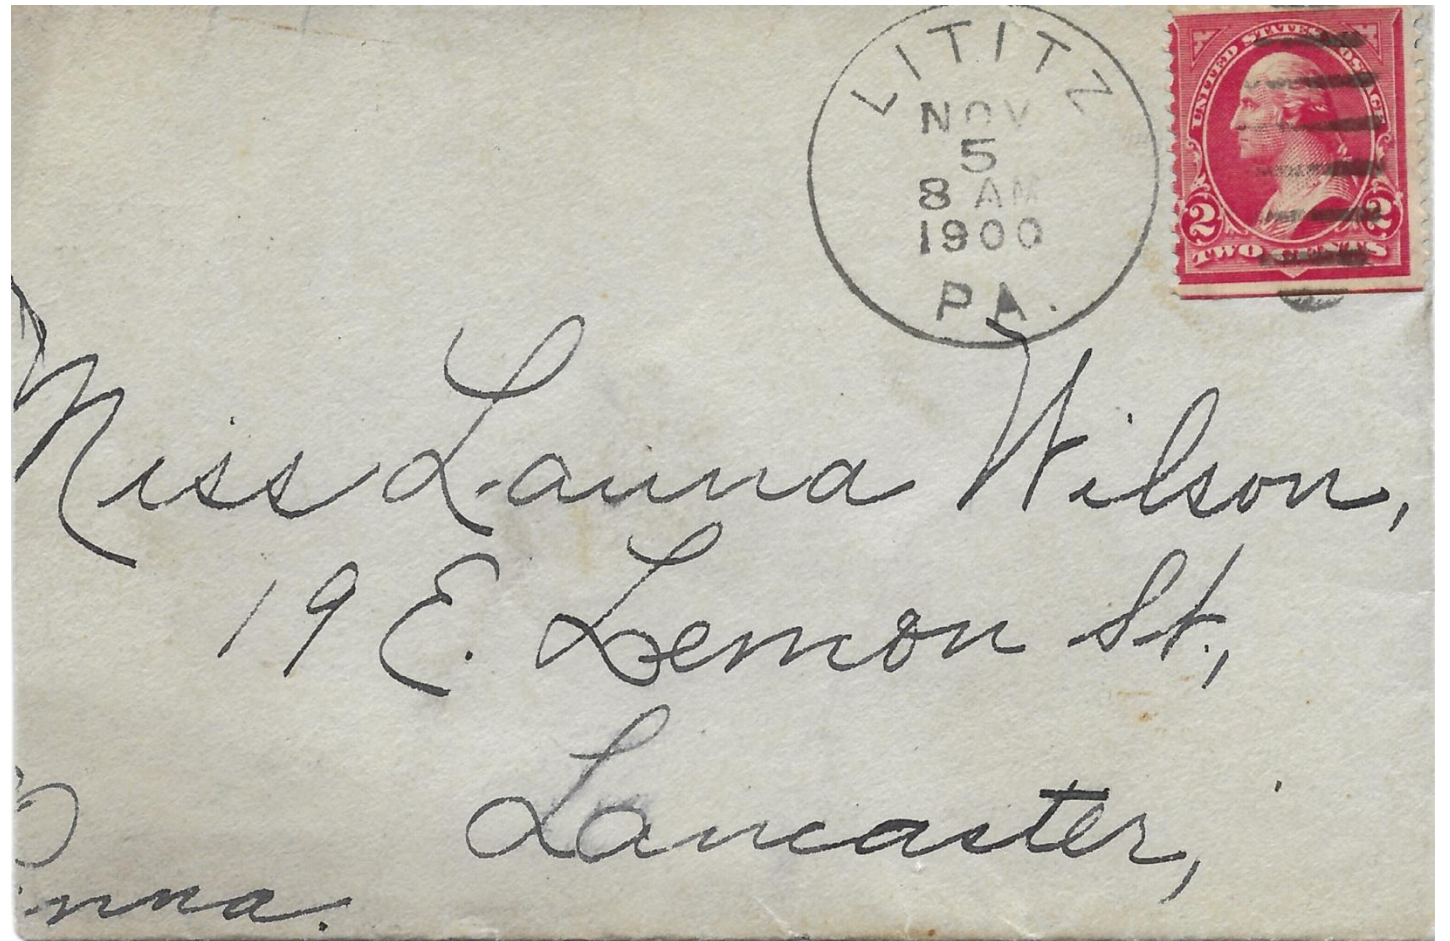 LITITZ
NOV
5
8 AM
1900
PA.
UNITED STATES POSTAGE
2 2
TWO CENTS
Miss Launa Wilson,
19 E. Lemon St.,
Lancaster,
enna.